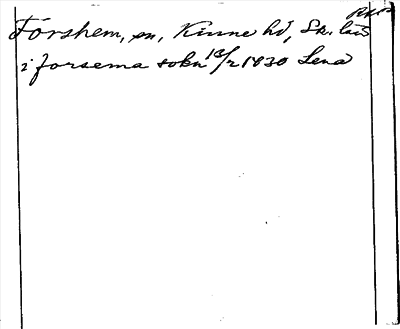 Forshem, sn, Kinne hd, Sk. län
i forsema sokn 18/2 1830 Lena